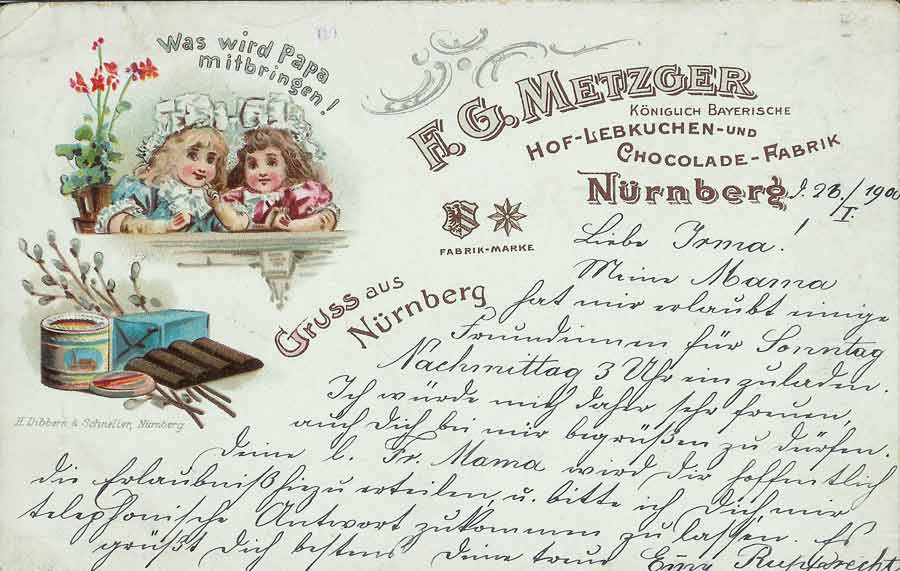 Was wird Papa
mitbringen!
F. G. Metzger
Königlich Bayerische
Hof-Lebkuchen-und
Chocolade-Fabrik
Nürnberg, d. 28./I. 1900
Fabrik-Marke
Gruss aus
Nürnberg
H. Dibbern & Schneller, Nürnberg
Liebe Irma!
Meine Mama
hat mir erlaubt einige
Freundinnen für Sonntag
Nachmittag 3 Uhr einzuladen.
Ich würde mich daher sehr freuen,
auch Dich bei mir begrüßen zu dürfen.
Deine l. Fr. Mama wird dir hoffentlich
die Erlaubniß hiezu erteilen, u. bitte ich Dich, mir
telephonische Antwort zukommen zu lassen. Es
grüßt Dich bestens Deine treue Emy Rupprecht